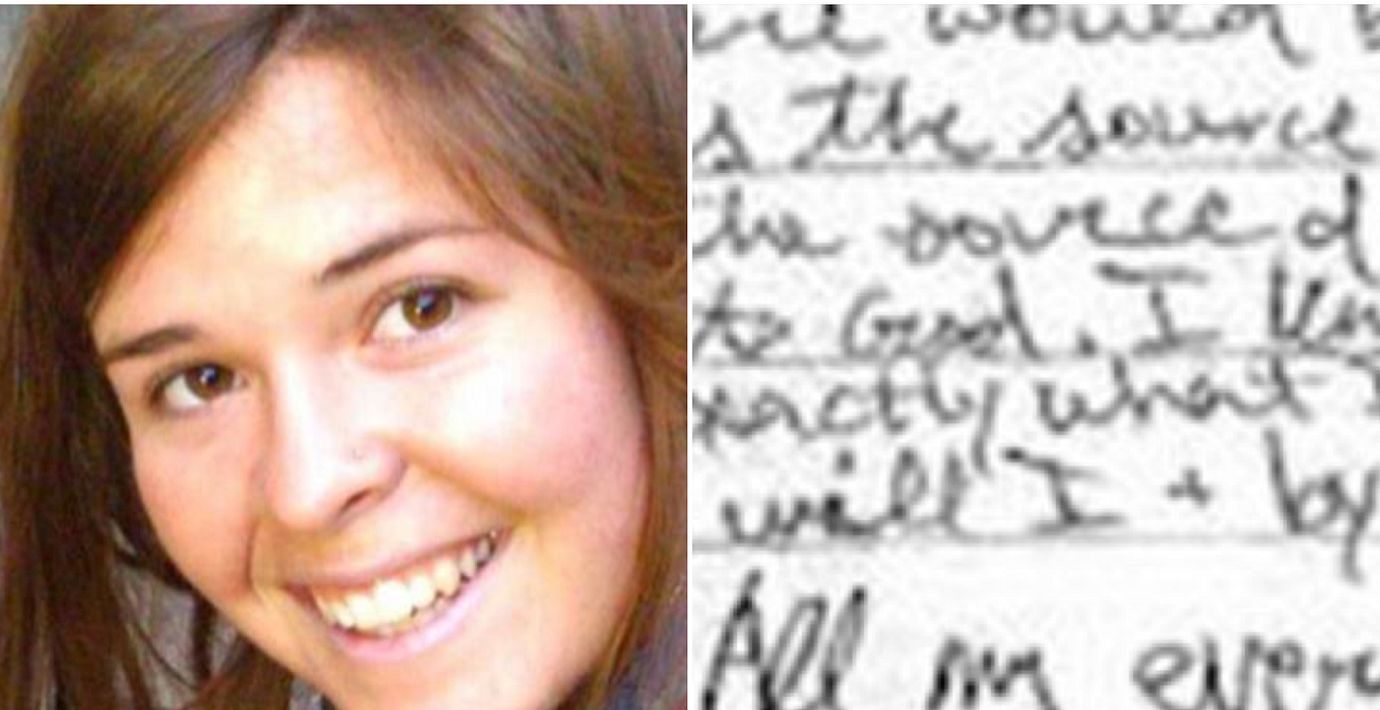 would
s the source
the source
to God. I
exactly what
will I + by
All my every